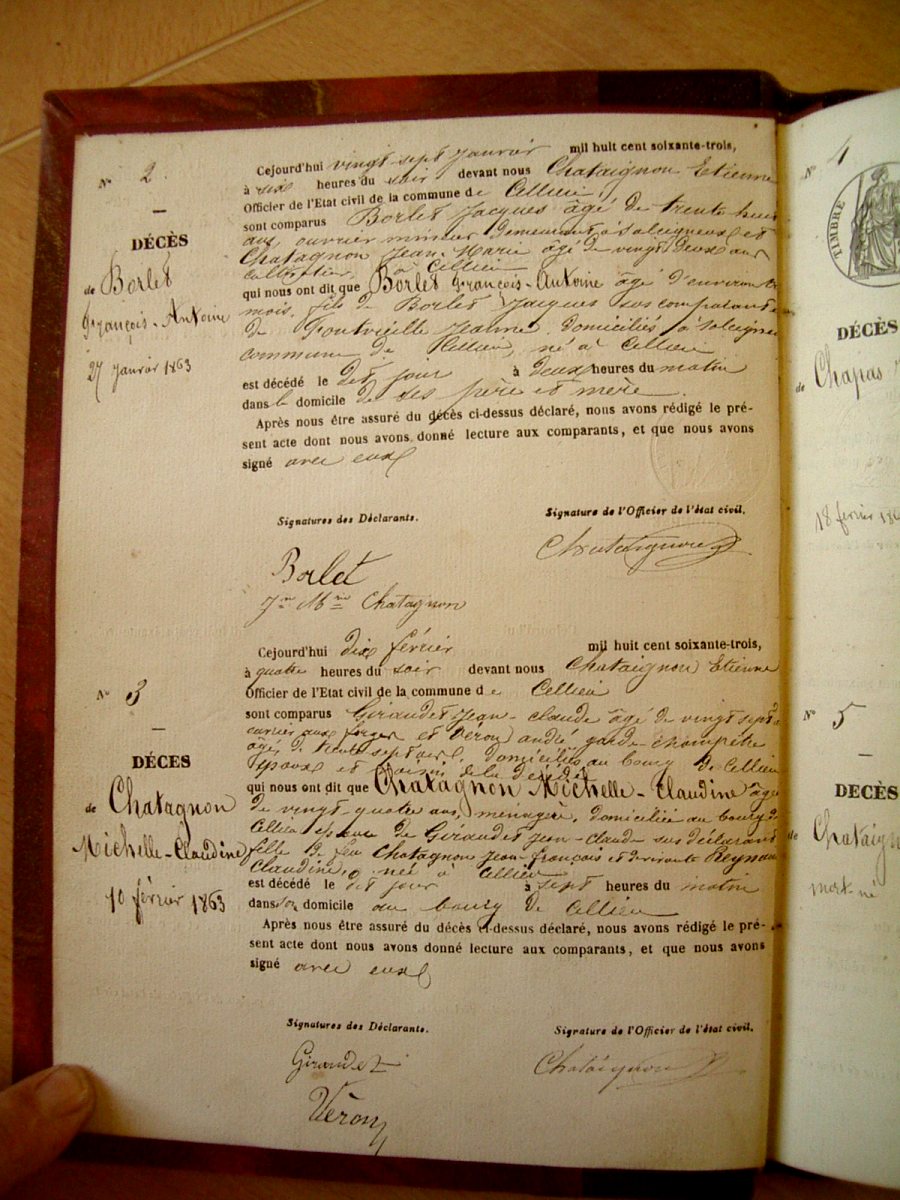 N° 2.
DÉCÈS
de Borlet
François-Antoine
27 janvier 1863
Cejourd'hui vingt-sept Janvier mil huit cent soixante-trois,
à six heures du soir devant nous Chataignon Etienne
Officier de l'Etat civil de la commune de Cellieu
sont comparus Borlet Jacques âgé de trente huit
ans, ouvrier mineur demeurant à Salcigneux et
Chatagnon Jean-Marie âgé de vingt deux ans
à Cellieu
qui nous ont dit que Borlet François-Antoine âgé d'environ
mois, fils de Borlet Jacques sus comparant
de Fontvieille Jeanne, domiciliés à
commune de Cellieu, né à Cellieu
est décédé le dit jour à deux heures du matin
dans le domicile de ses père et mère.
Après nous être assuré du décès ci-dessus déclaré, nous avons rédigé le pré-
sent acte dont nous avons donné lecture aux comparants, et que nous avons
signé avec eux
Signatures des Déclarants.
Signature de l'Officier de l'état civil.
Chataignon
Borlet
Jn Mie Chatagnon
N° 3
DÉCES
de Chatagnon
Michelle-Claudine
10 février 1863
Cejourd'hui dix février mil huit cent soixante-trois,
à quatre heures du soir devant nous Chataignon Etienne
Officier de l'Etat civil de la commune de Cellieu
sont comparus Giraudet Jean-claude âgé de vingt sept
ouvrier aux forges et Véron andré garde champêtre
âgé de trente sept ans, domiciliés au bourg de Cellieu
époux et voisin de la décédée
qui nous ont dit que Chatagnon Michelle-Claudine âgée
de vingt-quatre ans, menagère, domiciliée au bourg de
Cellieu épouse de Giraudet Jean-Claude sus déclarant
fille de feu Chatagnon Jean-françois et de vivante Reynaud
Claudine, née à Cellieu
est décédé le dit jour à sept heures du matin
dans son domicile au bourg de Cellieu
Après nous être assuré du décès ci-dessus déclaré, nous avons rédigé le pré-
sent acte dont nous avons donné lecture aux comparants, et que nous avons
signé avec eux
Signatures des Déclarants.
Signature de l'Officier de l'état civil.
Giraudet
Chataignon
Véron
N° 4
TIMBRE
DÉCÈS
de Chapas
18 février
N° 5
DECÈS
de Chataign
mort-né